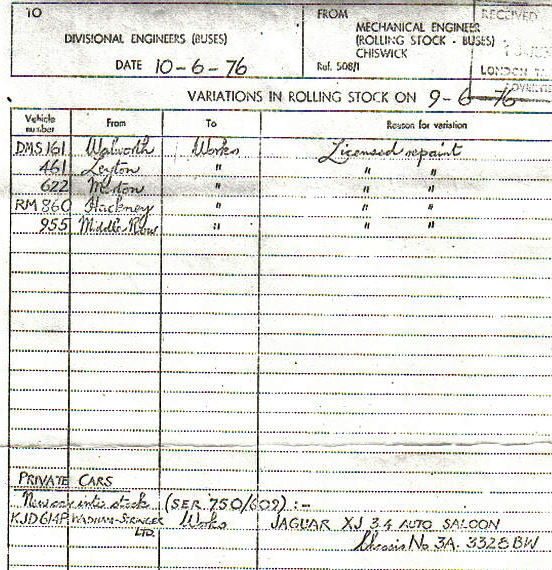 TO
DIVISIONAL ENGINEERS (BUSES)
DATE 10-6-76
FROM
MECHANICAL ENGINEER
(ROLLING STOCK - BUSES)
CHISWICK
Ref. 508/1
RECEIVED
LONDON
VARIATIONS IN ROLLING STOCK ON 9-6-76
Vehicle number From To Reason for variation
DMS 161 Walworth Works Licensed repaint
461 Leyton " " "
622 Merton " " "
RM 860 Hackney " " "
955 Middle Row " " "
PRIVATE CARS
New car into stock (SER 750/602) :-
KJD614P WADHAM-STRINGER LTD. Works JAGUAR XJ 3.4 AUTO SALOON
Chassis No 3A. 3328 BW